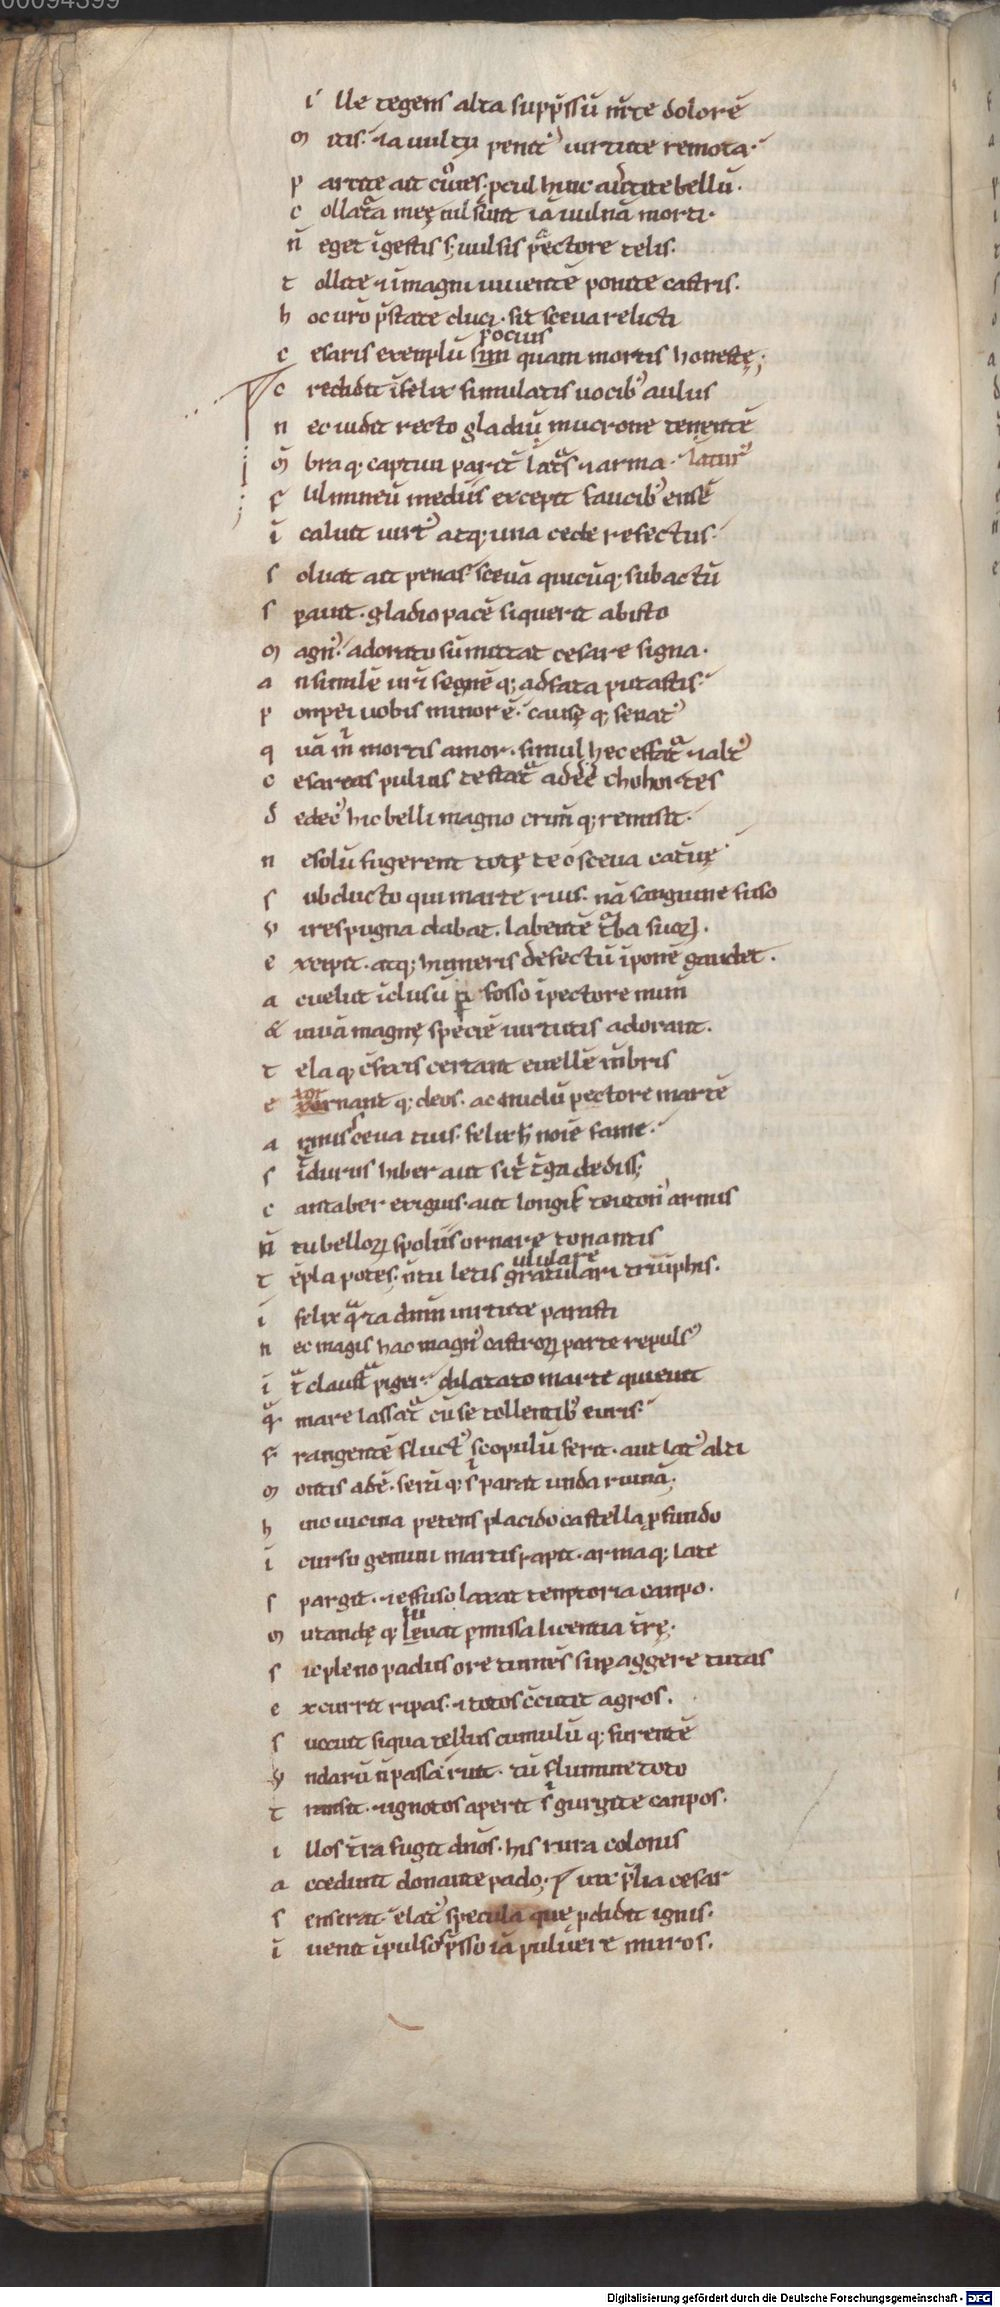 00094399
i lle tegens alta supp̄ssū mr̄te dolorē
m itis· ⁊ a uultu penit᷒ uirtute remota·
p arcite ait ciues· ꝓcul hinc aūtite bellū·
c ollat̄a meę nil sunt iā uuln̄a morti·
n̄ eget īgestis s; uulsis pectore telis·
t ollite ⁊ ī magni uiuentē ponite castris·
h oc ur̄o p̄state duci· sit sceua relicti
pocius
c esaris exemplū sim quam mortis honestę;
c redidit īfelix simulatis uocib᷒ aulus
n ec uidit recto gladiū mucrone tenentē
m̄ braq; captiui parit̄ lat̄s ⁊ arma· latur᷒
f ulmineū mediis excepit faucib᷒ ensē
ī caluit uirt᷒ atq; una cede refectus·
s oluat ait penas sceuā quicūq; subactū
s ꝑauit· gladio pacē si querit ab isto
m agn᷒· adorato sūmittat cesare signa·
a n similē ur̄i segnē q; ad fata putastis·
p onpei uobis minor ē· causę q; senat᷒
q uā m̄ mortis amor· simul hec effat᷑ ⁊ alt᷒
c esareas puluis testat᷑ adēē chohortes
d edec᷒ hic belli magno crim̄ q; remisit·
n e solū fugerent totę te o sceua cat̄uę
s ubducto qui marte ruis· nā sanguine fuso
v ires pugna dabat· labentē t̄ba suoꝝ·
e xcipit· atq; humeris defectū īponē gaudet·
a c uelut īclusū ꝑ fosso ī pectore num̄
& uiuā magnę speciē uirtutis adorant·
t ela q; c̄fixis certant euellē m̄bris
e xornant q; deos· ac nudū pectore martē
a rmis sceua tuis· felix h̄ noīe fame·
s ī durus hiber aut si t̄ t̄ga dediss;
c antaber exiguis· aut longis teuton᷒ armis
n̄ tu belloꝝ spoliis ornare tonantis
ululare
t ēpla potes· n̄ tu letis gratulari triūphis·
i felix q̄nta dnm̄ uirtute parasti
n ec magis hac magn᷒ castroꝝ parte repuls᷒
i t̄ claust̄ piger· dilatato marte quieuit
q̄ mare lassat᷑ cū se tollentib᷒ euris·
f rangentē fluct᷒ scopulū ferit· aut lat᷒ alti
m ontis adē· serū q; s᷑ parat unda ruinā·
h inc uicina petens placido castella ꝓfundo
i cursu gemini martis rapit· arma q; late
s pargit· ⁊ effuso laxat temptoria canpo·
m utandę q; iuuat ꝑmissa licentia t̄rę·
s ic pleno padus ore tumēs suꝑ aggere tutas
e xcurrit ripas· ⁊ totos c̄cutit agros·
s uccuit siqua tellus cumulū q; furentē
v ndarū n̄ passa ruit· tū flumine toto
t ransit· ⁊ ignotos aperit s᷑ gurgite canpos·
i llos t̄ra fugit dn̄os· his rura colonis
a ccedunt donante pado· uix p̄lia cesar
s enserat· elat᷒ specula quę ꝓdidit ignis·
ī uenit īpulsos p̄sso iā puluere muros·
Digitalisierung gefördert durch die Deutsche Forschungsgemeinschaft - DFG